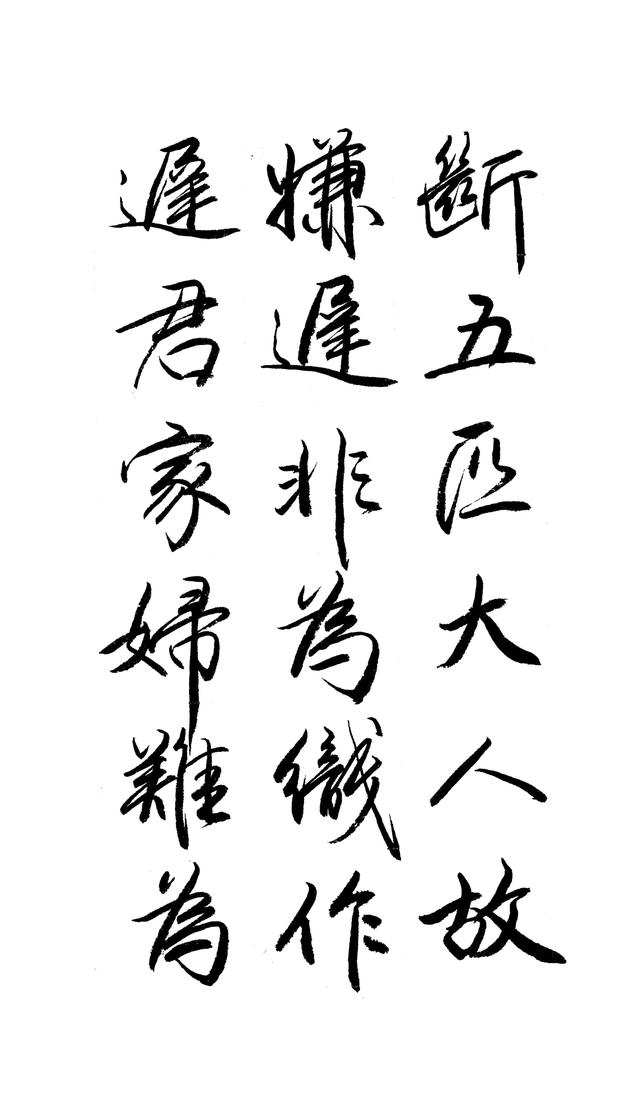 斷五匹大人故
嫌遲非為織作
遲君家婦難為